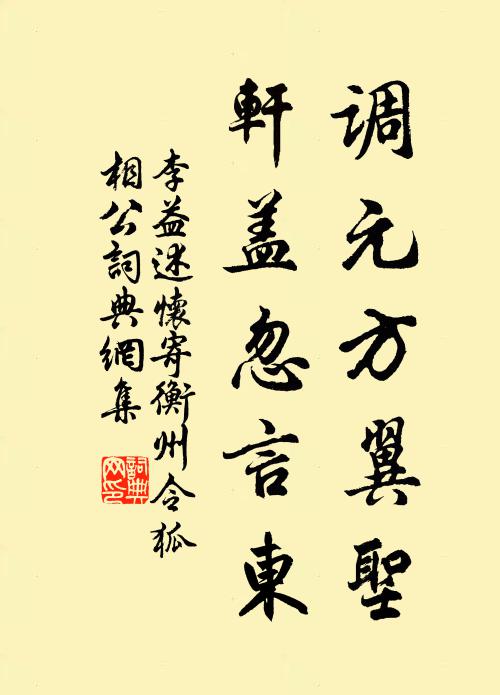 调元方翼聖
軒盖忽言東
李益述懷寄衡州令狐
相公詞典網集
詞典
网印